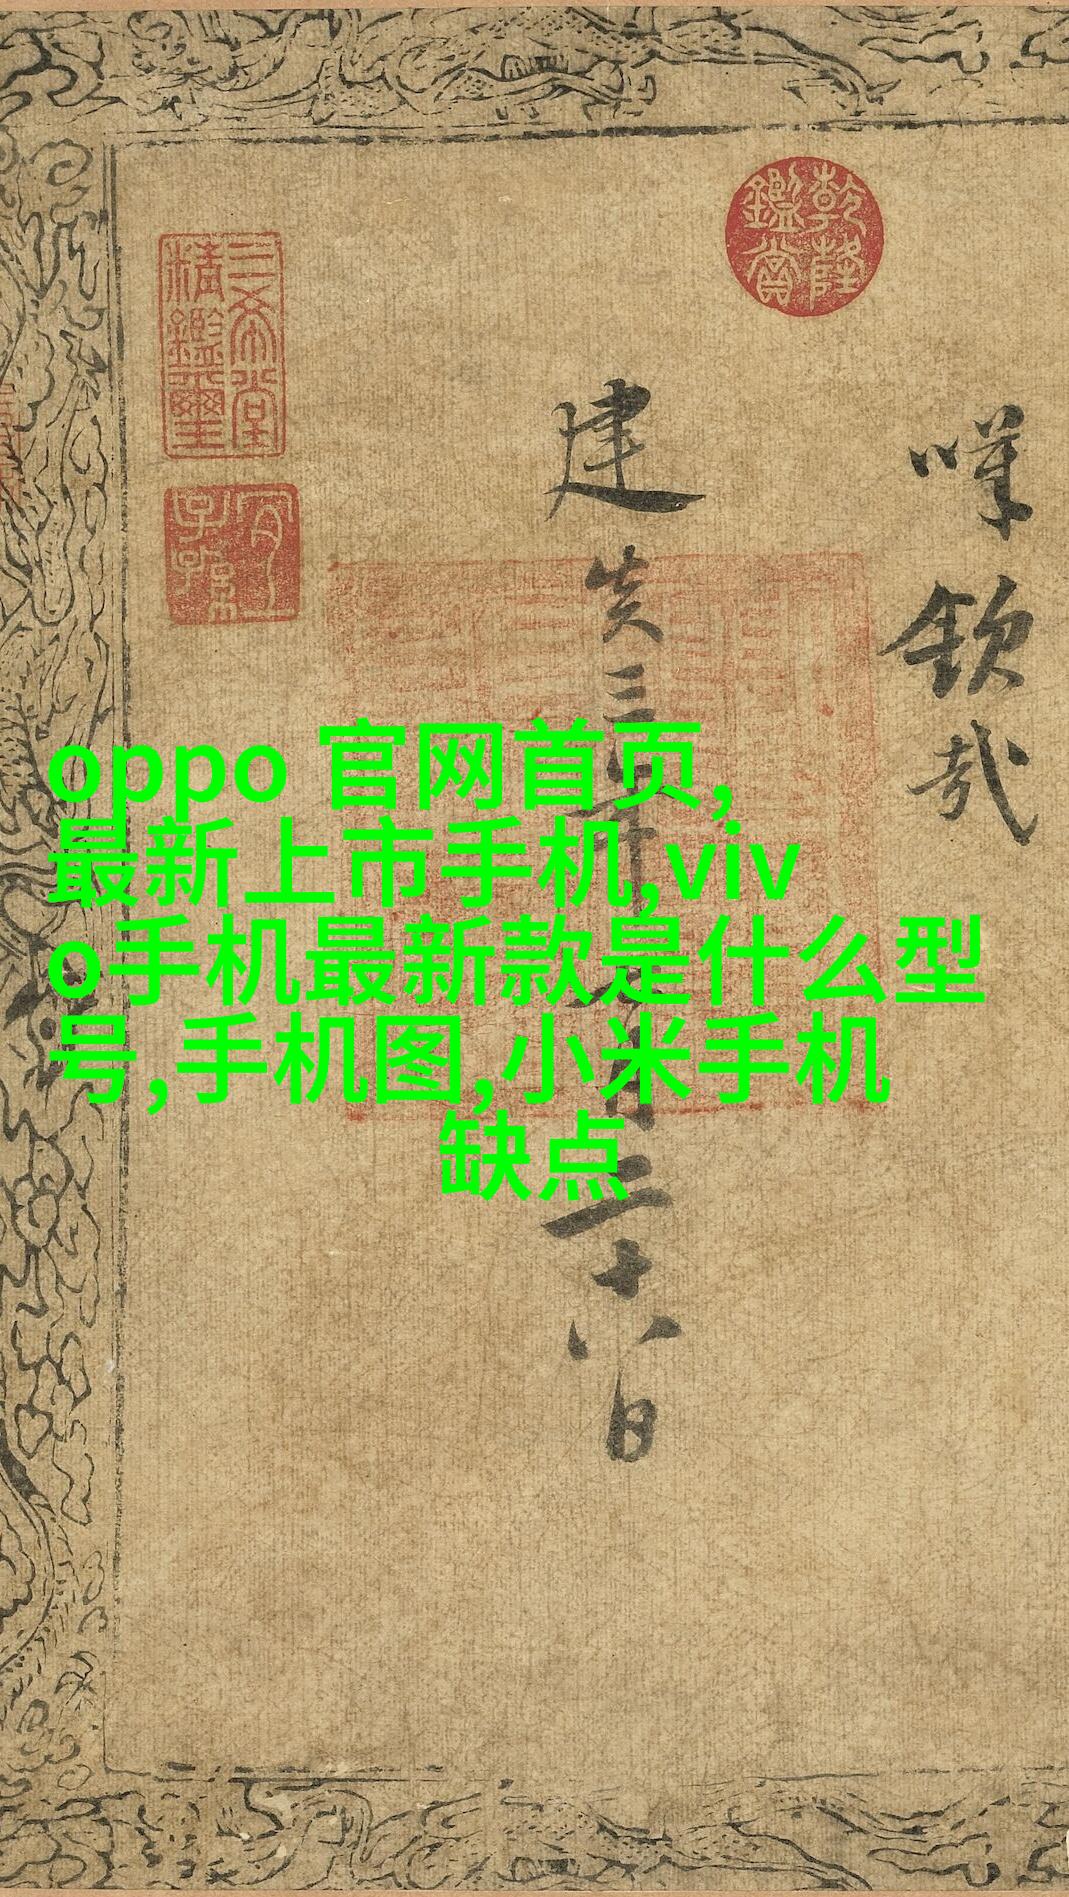 欽哉
乾隆
鑑賞
建炎三年
月二十八日
三希堂
精鑑璽
宜
子孫
oppo 官网首页,
最新上市手机,viv
o手机最新款是什么型
号,手机图,小米手机
缺点